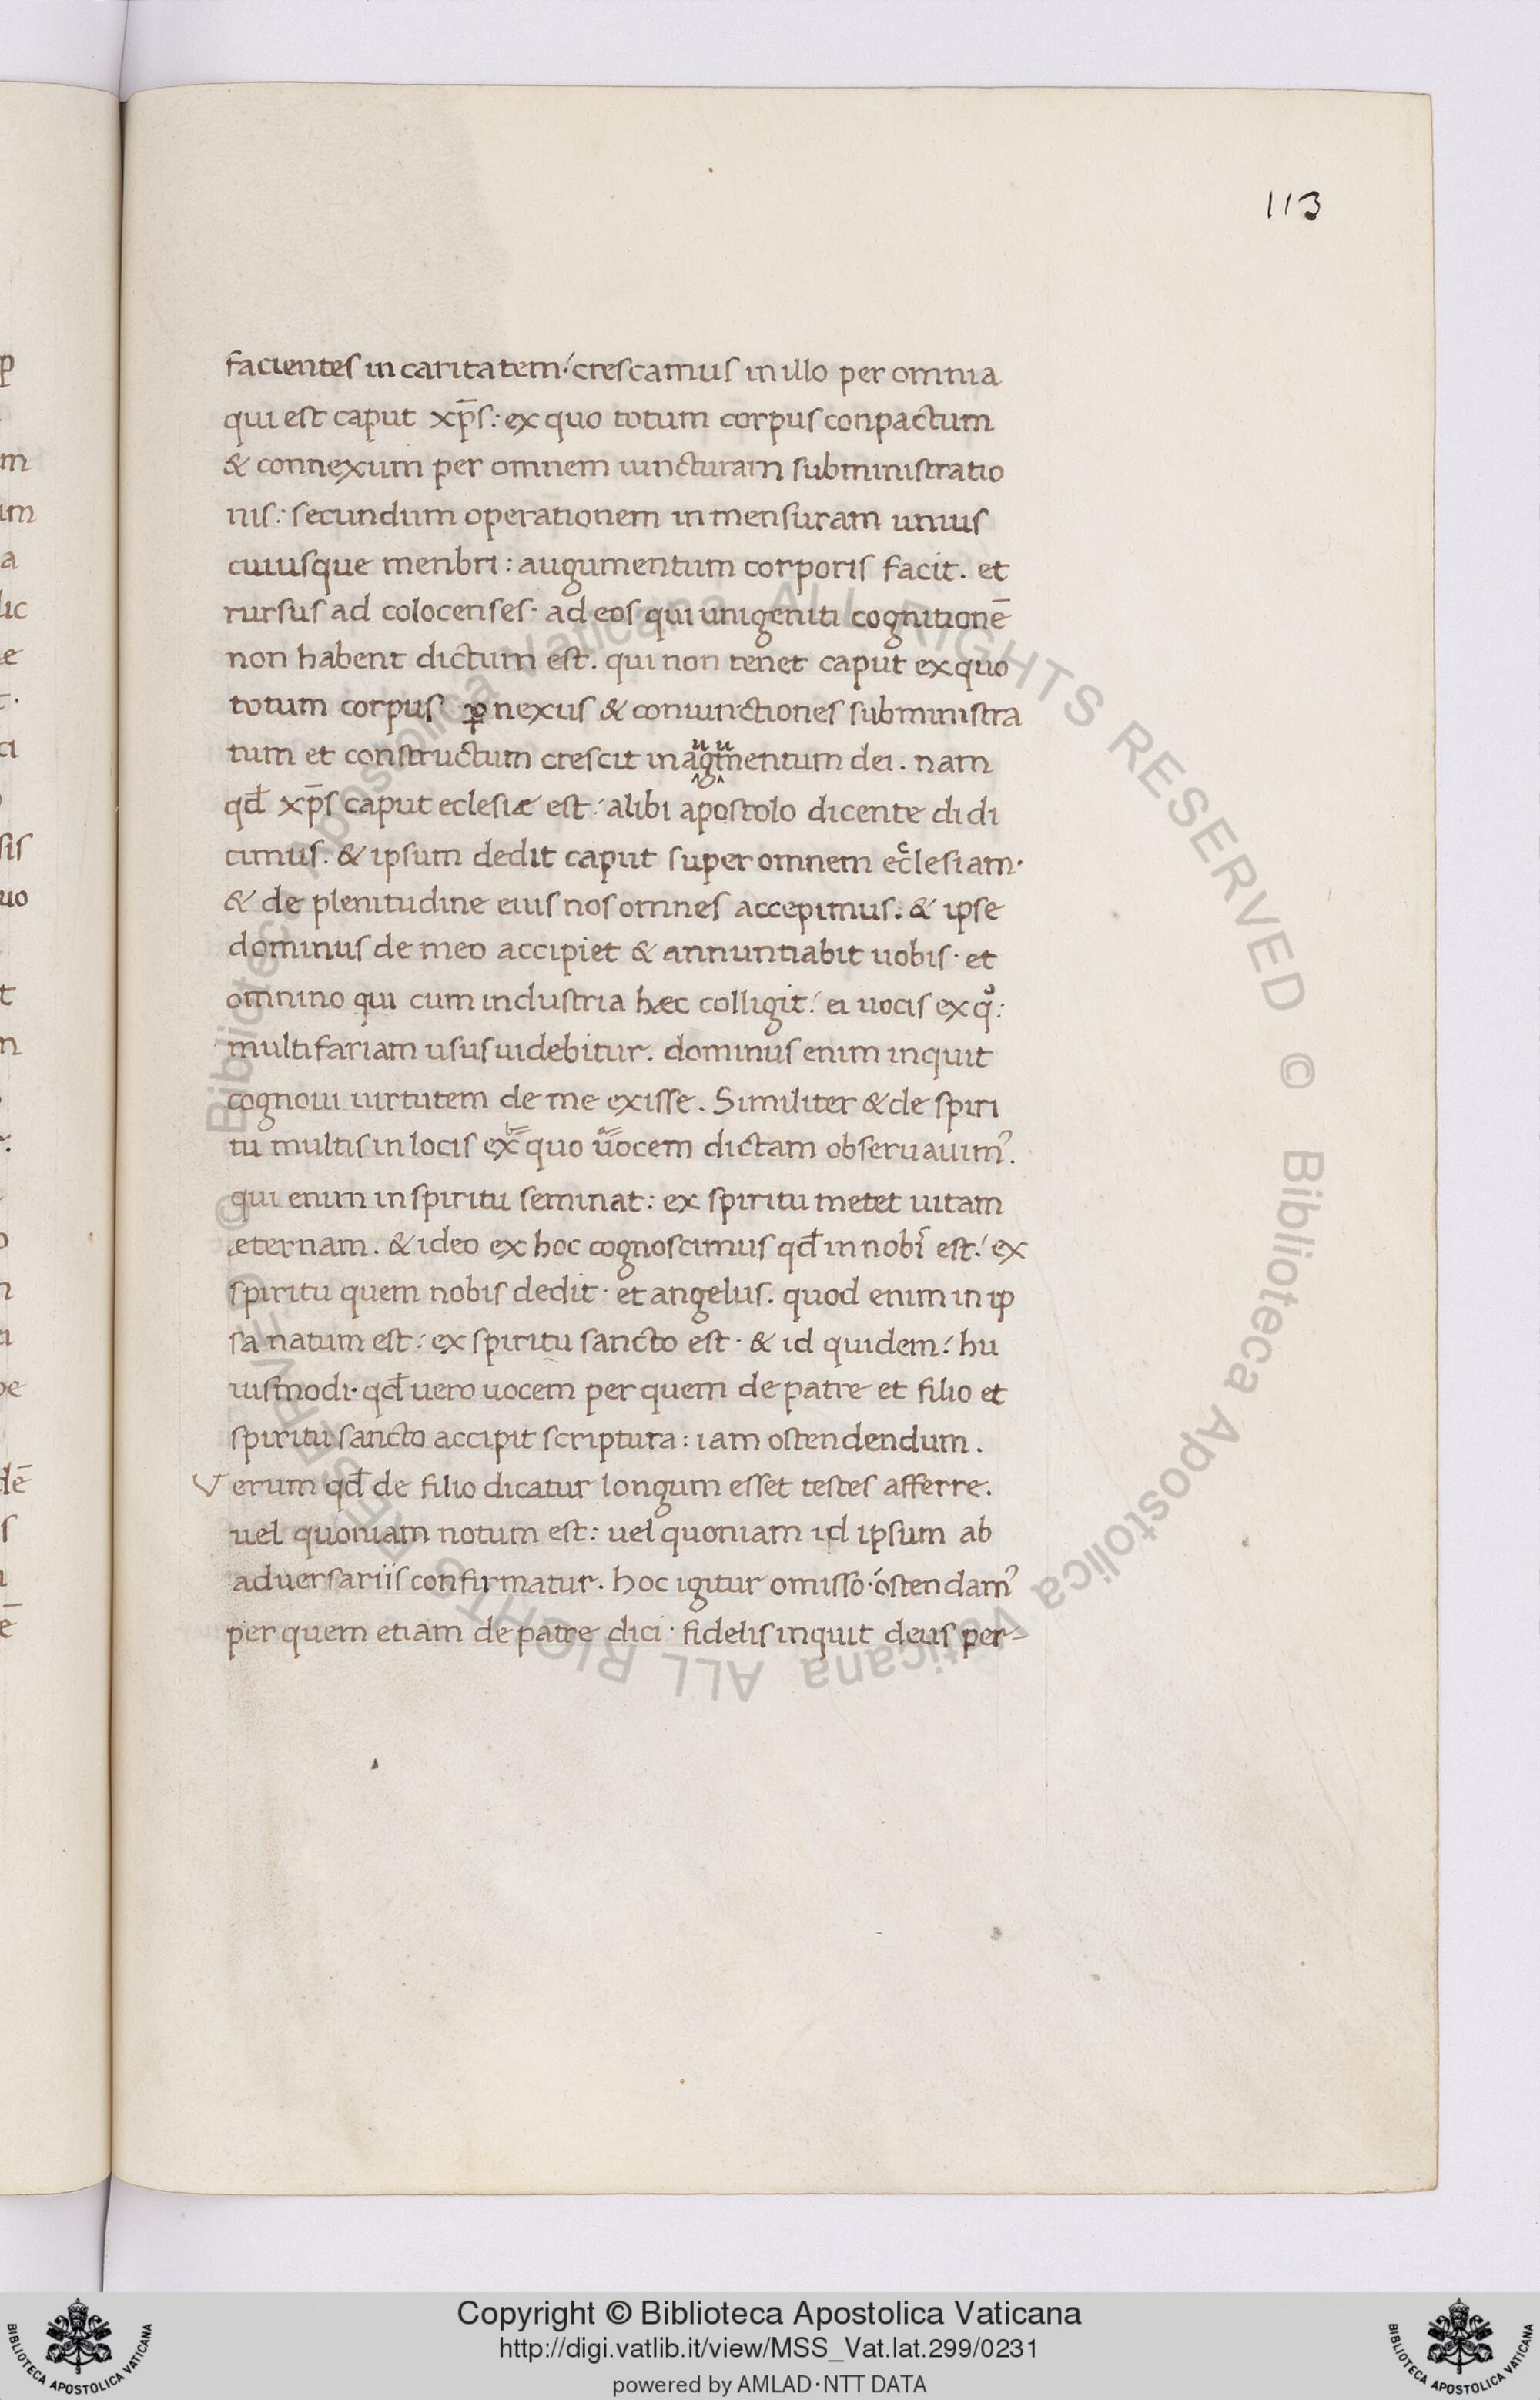 113
facientes in caritatem·/ crescamus in illo per omnia
qui est caput xp̄s: ex quo totum corpus conpactum
& connexum per omnem iuncturam subministratio
nis: secundum operationem in mensuram unius
cuiusque menbri: augumentum corporis facit. et
rursus ad colocenses· ad eos qui unigeniti cognitionē
non habent dictum est. qui non tenet caput ex quo
totum corpus ꝑ nexus & coniunctiones subministra
tum et constructum crescit in augumentum dei. nam
qd̄ xp̄s caput eclesiæ est:/ alibi apostolo dicente didi
cimus. & ipsum dedit caput super omnem ecclesiam·
& de plenitudine eius nos omnes accepimus. & ipse
dominus de meo accipiet & annuntiabit uobis· et
omnino qui cum industria hæc colligit:/ ei uocis ex qͦ:
multifariam usus uidebitur. dominus enim inquit
cognoui uirtutem de me exisse. Similiter & de spiri
tu multis in locis ex quo uocem dictam obseruauim᾽.
qui enim in spiritu seminat: ex spiritu metet uitam
æternam. & ideo ex hoc cognoscimus qd̄ in nobī est:/ ex
spiritu quem nobis dedit· et angelus. quod enim in ip
sa natum est:/ ex spiritu sancto est· & id quidem:/ hu
iusmodi· qd̄ uero uocem per quem de patre et filio et
spiritu sancto accipit scriptura: iam ostendendum.
Verum qd̄ de filio dicatur longum esset testes afferre.
uel quoniam notum est: uel quoniam id ipsum ab
aduersariis confirmatur. hoc igitur omisso·/ ostendam᾽
per quem etiam de patre dici· fidelis inquit deus per-
© Biblioteca Apostolica Vaticana ALL RIGHTS RESERVED © Biblioteca Apostolica Vaticana ALL RIGHTS RESERVED
Copyright © Biblioteca Apostolica Vaticana
http://digi.vatlib.it/view/MSS_Vat.lat.299/0231
powered by AMLAD·NTT DATA
BIBLIOTECA APOSTOLICA VATICANA
BIBLIOTECA APOSTOLICA VATICANA